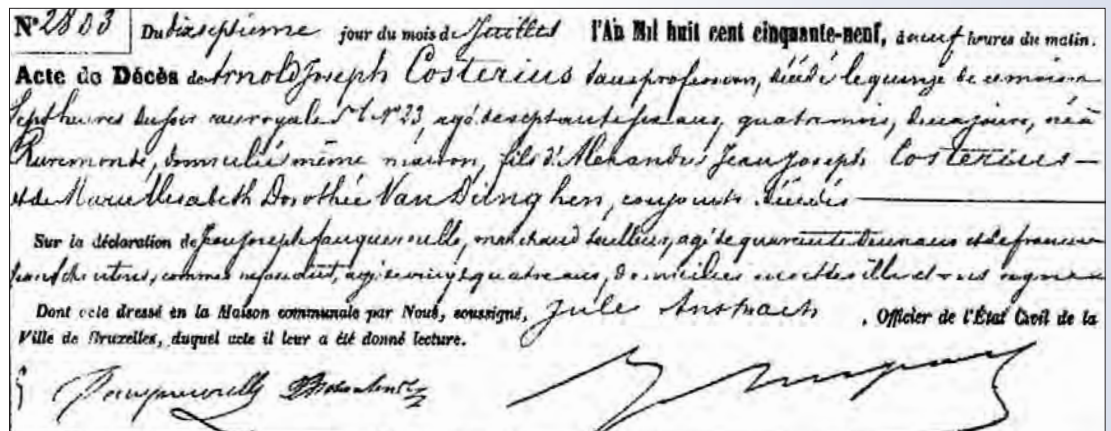 N° 2803 Du dixseptieme jour du mois de Juillet l'An Mil huit cent cinquante-neuf, à neuf heures du matin.
Acte de Décès de Arnold Joseph Costerius sans profession, décédé le quinze de ce mois à
Sept heures du soir rue royale N° 23, agé de septante ans, quatre mois, jours, né à
Ruremonde, domicilié même maison, fils d'Alexandre Jean Joseph Costerius
et de Marie Elisabeth Dorothée Van Dinghen, conjoints décédés
Sur la déclaration de Jean Joseph marchand tailleur, agé de quarante deux ans et de
commis négociant, agé de vingt quatre ans, domiciliés en cette ville
Dont acte dressé en la Maison communale par Nous, soussigné, Jule Anspach , Officier de l'État Civil de la
Ville de Bruxelles, duquel acte il leur a été donné lecture.